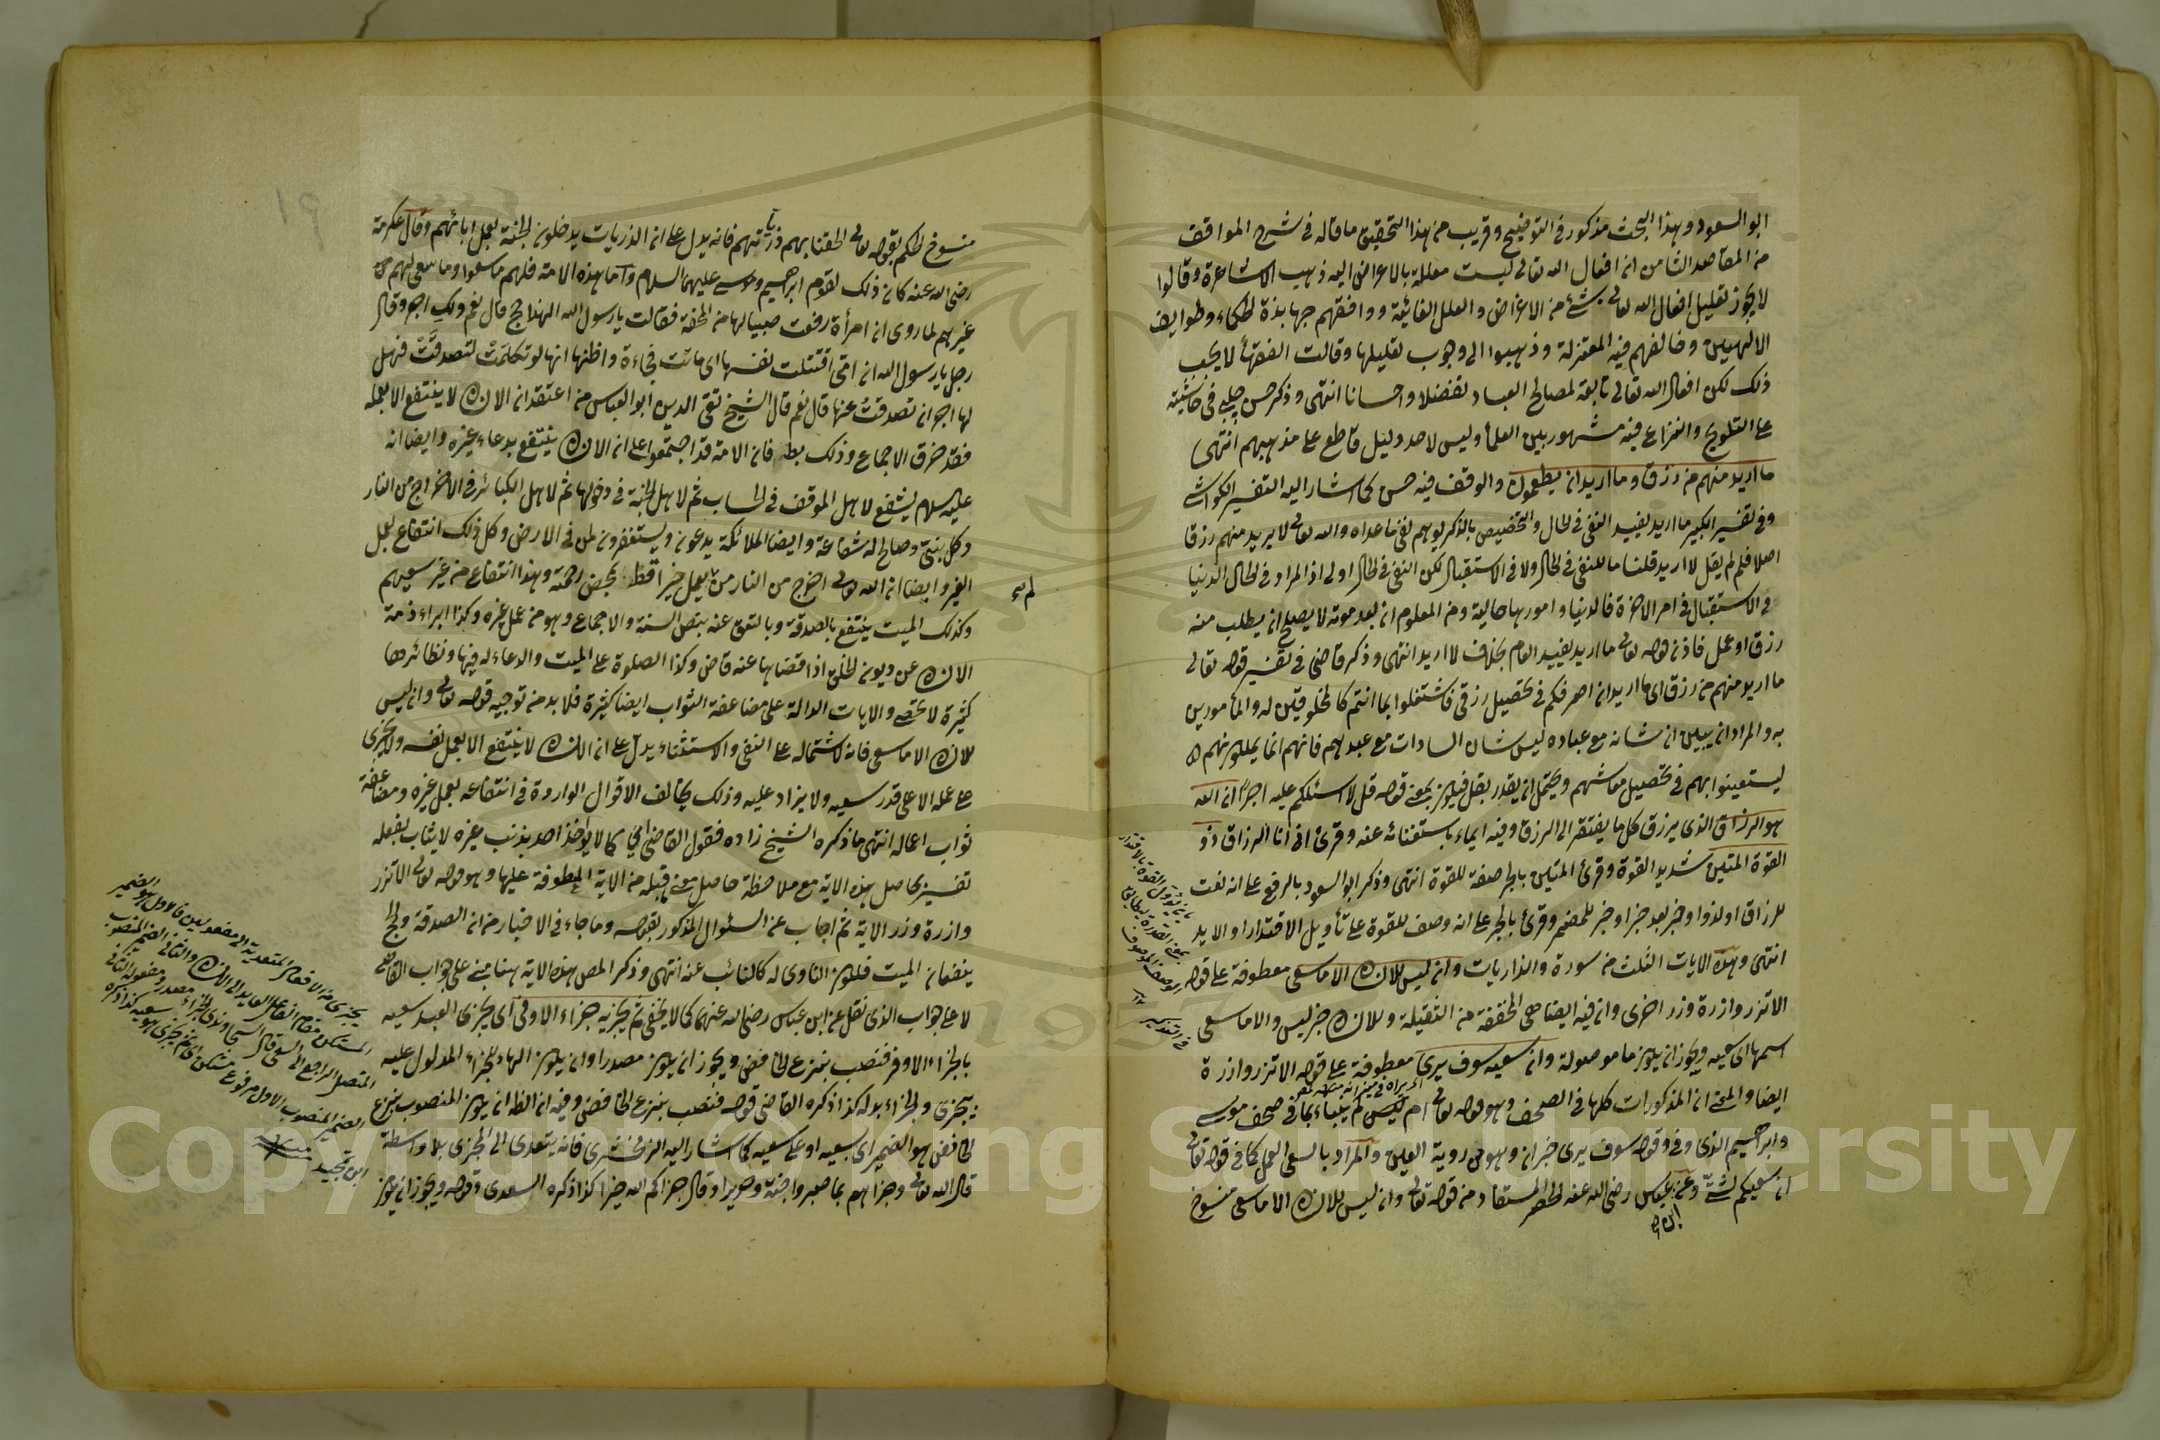 ابو السعود وهذا البحث مذكور في التوضيح وقريب من هذا التحقيق ما قاله في شرح المواقف
من المقاصد الثامن ان افعال الله تعالى ليست معللة بالاغراض اليه ذهب الاشاعرة وقالوا
لا يجوز تعليل افعال الله تعالى بشئ من الاغراض والعلل الغائية ووافقهم جهابذة الحكماء وطوايف
الالهيين وخالفهم فيه المعتزلة وذهبوا الى وجوب تعليلها وقالت الفقهاء لا يجب
ذلك لكن افعال الله تعالى تابعة لمصالح العباد تفضلا واحسانا انتهى وذكر حسن چلبى في حاشيته
على التلويح والنزاع فيه مشهور بين العلماء وليس لاحد دليل قاطع على مذهبهم انتهى
ما اريد منهم من رزق وما اريد ان يطعمون والوقف فيه حسن كما اشار اليه التفسير الكواشى
وفي تفسير الكبير ما اريد يفيد النفى في الحال والتخصيص بالذكر يوهم نفى ما عداه والله تعالى لا يريد منهم رزقا
اصلا فلم لم يقل لا اريد قلنا ما للنفى في الحال ولا في الاستقبال لكن النفى في الحال اولى اذ المراد في الحال الدنيا
في الاستقبال في امر الاخرة فالدنيا وامورها حالية ومن المعلوم ان بعد موته لا يصلح ان يطلب منه
رزق او عمل فاذن قوله تعالى ما اريد يفيد العام بخلاف لا اريد انتهى وذكر قاضى في تفسير قوله تعالى
ما اريد منهم من رزق اى ما اريد ان اصرفكم في تحصيل رزقى فاشتغلوا بما انتم كالمخلوقين له والمأمورين
به والمراد ان يبين ان شانه مع عباده ليس شان السادات مع عبيدهم فانهم انما يملكونهم
ليستعينوا بهم في تحصيل معائشهم ويحتمل ان يقدر بقل فيكون بمعنى قوله قل لا اسئلكم عليه اجرًا ان الله
هو الرزاق الذى يرزق كل ما يفتقر الى الرزق وفيه ايماء باستغنائه عنه وقرئ انى انا الرزاق ذو
القوة المتين شديد القوة وقرئ المتين بالجر صفة للقوة انتهى وذكر ابو السعود بالرفع على انه نعت
للرزاق او لذو او خبر بعد خبر او خبر للمضمر وقرئ بالجر على انه وصف للقوة على تأويل الاقتدار او الايد
انتهى وهذه الايات الثلث من سورة والذاريات وان ليس للانسان الا ما سعى معطوفة على قوله
الا تزر وازرة وزر اخرى وان فيه ايضا هى المخففة من الثقيلة وللانسان خبر ليس والا ما سعى
اسمها اى سعيه ويجوز ان يكون ما موصولة وان سعيه سوف يرى معطوفة على قوله الا تزر وازرة
ايضا والمعنى ان المذكورات كلها في الصحف وهو قوله تعالى ام لم ينبأ بما في صحف موسى
وابراهيم الذى وفى وقوله سوف يرى خبر ان وهو من روية العين والمراد بالسعى العمل كما في قوله تعالى
ان سعيكم لشتى وعن عباس رضى الله عنه الحصر المستفاد من قوله تعالى وان ليس للانسان الا ما سعى منسوخ
منسوخ الحكم بقوله تعالى الحقنا بهم ذرياتهم فانه يدل على ان الذريات يدخلون الجنة بعمل ابائهم وقال عكرمة
رضى الله عنه كان ذلك لقوم ابراهيم وموسى عليهما السلام واما هذه الامة فلهم ما سعوا وما سعى لهم
غيرهم لما روى ان امرأة رفعت صبيا لها من المحفة فقالت يا رسول الله الهذا حج قال نعم ولك اجر وقال
رجل يا رسول الله ان امى اقتتلت نفسها اى ماتت فجاءة واظنها انها لو تكلمت لتصدقت فهل
لها اجر ان تصدقت عنها قال نعم قال الشيخ تقى الدين ابو العباس من اعتقد ان الانسان لا ينتفع الا بعمله
فقد خرق الاجماع وذلك بط فان الامة قد اجتمعوا على ان الانسان ينتفع بدعاء غيره وايضا انه
عليه السلام يشفع لاهل الموقف في الحساب ثم لاهل الجنة في دخولها ثم لاهل الكبائر في الاخراج من النار
وكل نبى وصالح له شفاعة وايضا الملائكة يدعون ويستغفرون لمن في الارض وكل ذلك انتفاع بعمل
الغير وايضا ان الله تعالى اخرج من النار من لم يعمل خيرا قط بمحض رحمة وهذا انتفاع من غير سعيهم
وكذلك الميت ينتفع بالصدقة وبالعتق عنه بنص السنة والاجماع وهو من عمل غيره وكذا ابراء ذمة
الانسان عن ديون الخلق اذا قضاها عنه قاض وكذا الصلوة على الميت والدعاء له فيها ونظائرها
كثيرة لا تحصى والايات الدالة على مضاعفة الثواب ايضا كثيرة فلا بد من توجيه قوله تعالى وان ليس
للانسان الا ما سعى فانه لاشتماله على النفى والاستثناء يدل على ان الانسان لا ينتفع الا بعمل نفسه ولا يجزى
على عمله الا على قدر سعيه ولا يزاد عليه وذلك يخالف الاقوال الواردة في انتفاعه بعمل غيره ومضاعفة
ثواب اعماله انتهى ما ذكره الشيخ زاده فقول القاضى اى كما لا يؤاخذ احد بذنب غيره لا يثاب بفعله
تفسير بحاصل هذه الاية مع ملاحظة حاصل معنى قبله من الاية المعطوفة عليها وهو قوله تعالى الا تزر
وازرة وزر الاية ثم اجاب عن السئوال المذكور بقوله وما جاء في الاخبار من ان الصدقة والحج
ينفعان الميت فلكون الناوى له كالنائب عنه انتهى وذكر المص هذه الاية هنا مبنى على جواب القاضى
لا على جواب الذى نقل عن ابن عباس رضى الله عنهما كما لا يخفى ثم يجزيه جزاء الاوفى اى يجزى العبد سعيه
بالجزاء الاوفر فنصب بنزع الخافض ويجوز ان يكون مصدرا وان يكون الهاء للجزاء المدلول عليه
بيجزى والجزاء بدله كذا ذكره القاضى قوله فنصب بنزع الخافض وفيه ان الظ ان يكون المنصوب بنزع
الخافض هو الضمير اى بسعيه او على سعيه كما اشار اليه الزمخشرى فانه يتعدى الى المجزى بلا واسطة
قال الله تعالى وجزاهم بما صبروا جنة وحريرا وقال جزاكم الله خيرا كذا ذكره السعدى وقوله ويجوز ان يكون
١٩
Copyright © King Saud University